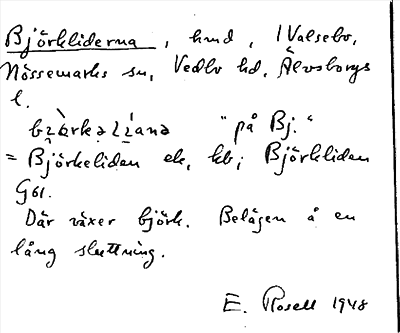 Björkliderna, hmd, i Valsebo,
Nössemarks sn, Vedbo hd, Älvsborgs
l.
"på Bj."
= Björkeliden ek, kb; Björkliden
G61.
Där växer björk. Belägen å en
lång sluttning.
E. Rosell 1948